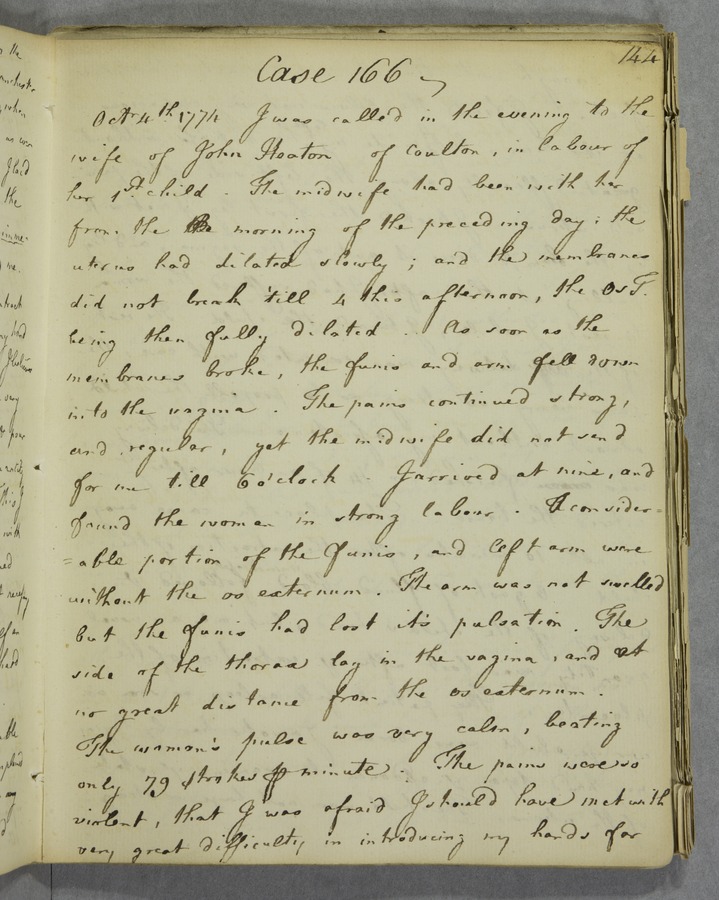 144
Case 166
Octr 4th 1774 I was called in the evening to the
wife of John Heaton of Coulton, in labour of
her 1st child. The midwife had been with her
from the morning of the preceding day; the
uterus had dilated slowly; and the membranes
did not break 'till 4 this afternoon, the Os T.
being then fully dilated. As soon as the
membranes broke, the funis and arm fell down
into the vagina. The pains continued strong,
and regular, yet the midwife did not send
for me till 6 o'clock. I arrived at nine, and
found the woman in strong labour. A consider=
=able portion of the funis, and left arm were
without the os externum. The arm was not swelled
but the funis had lost it's pulsation. The
side of the thorax lay in the vagina, and at
no great distance from the os externum.
The woman's pulse was very calm, beating
only 79 strokes p minute. The pains were so
violent, that I was afraid I should have met with
very great difficulty in introducing my hands far